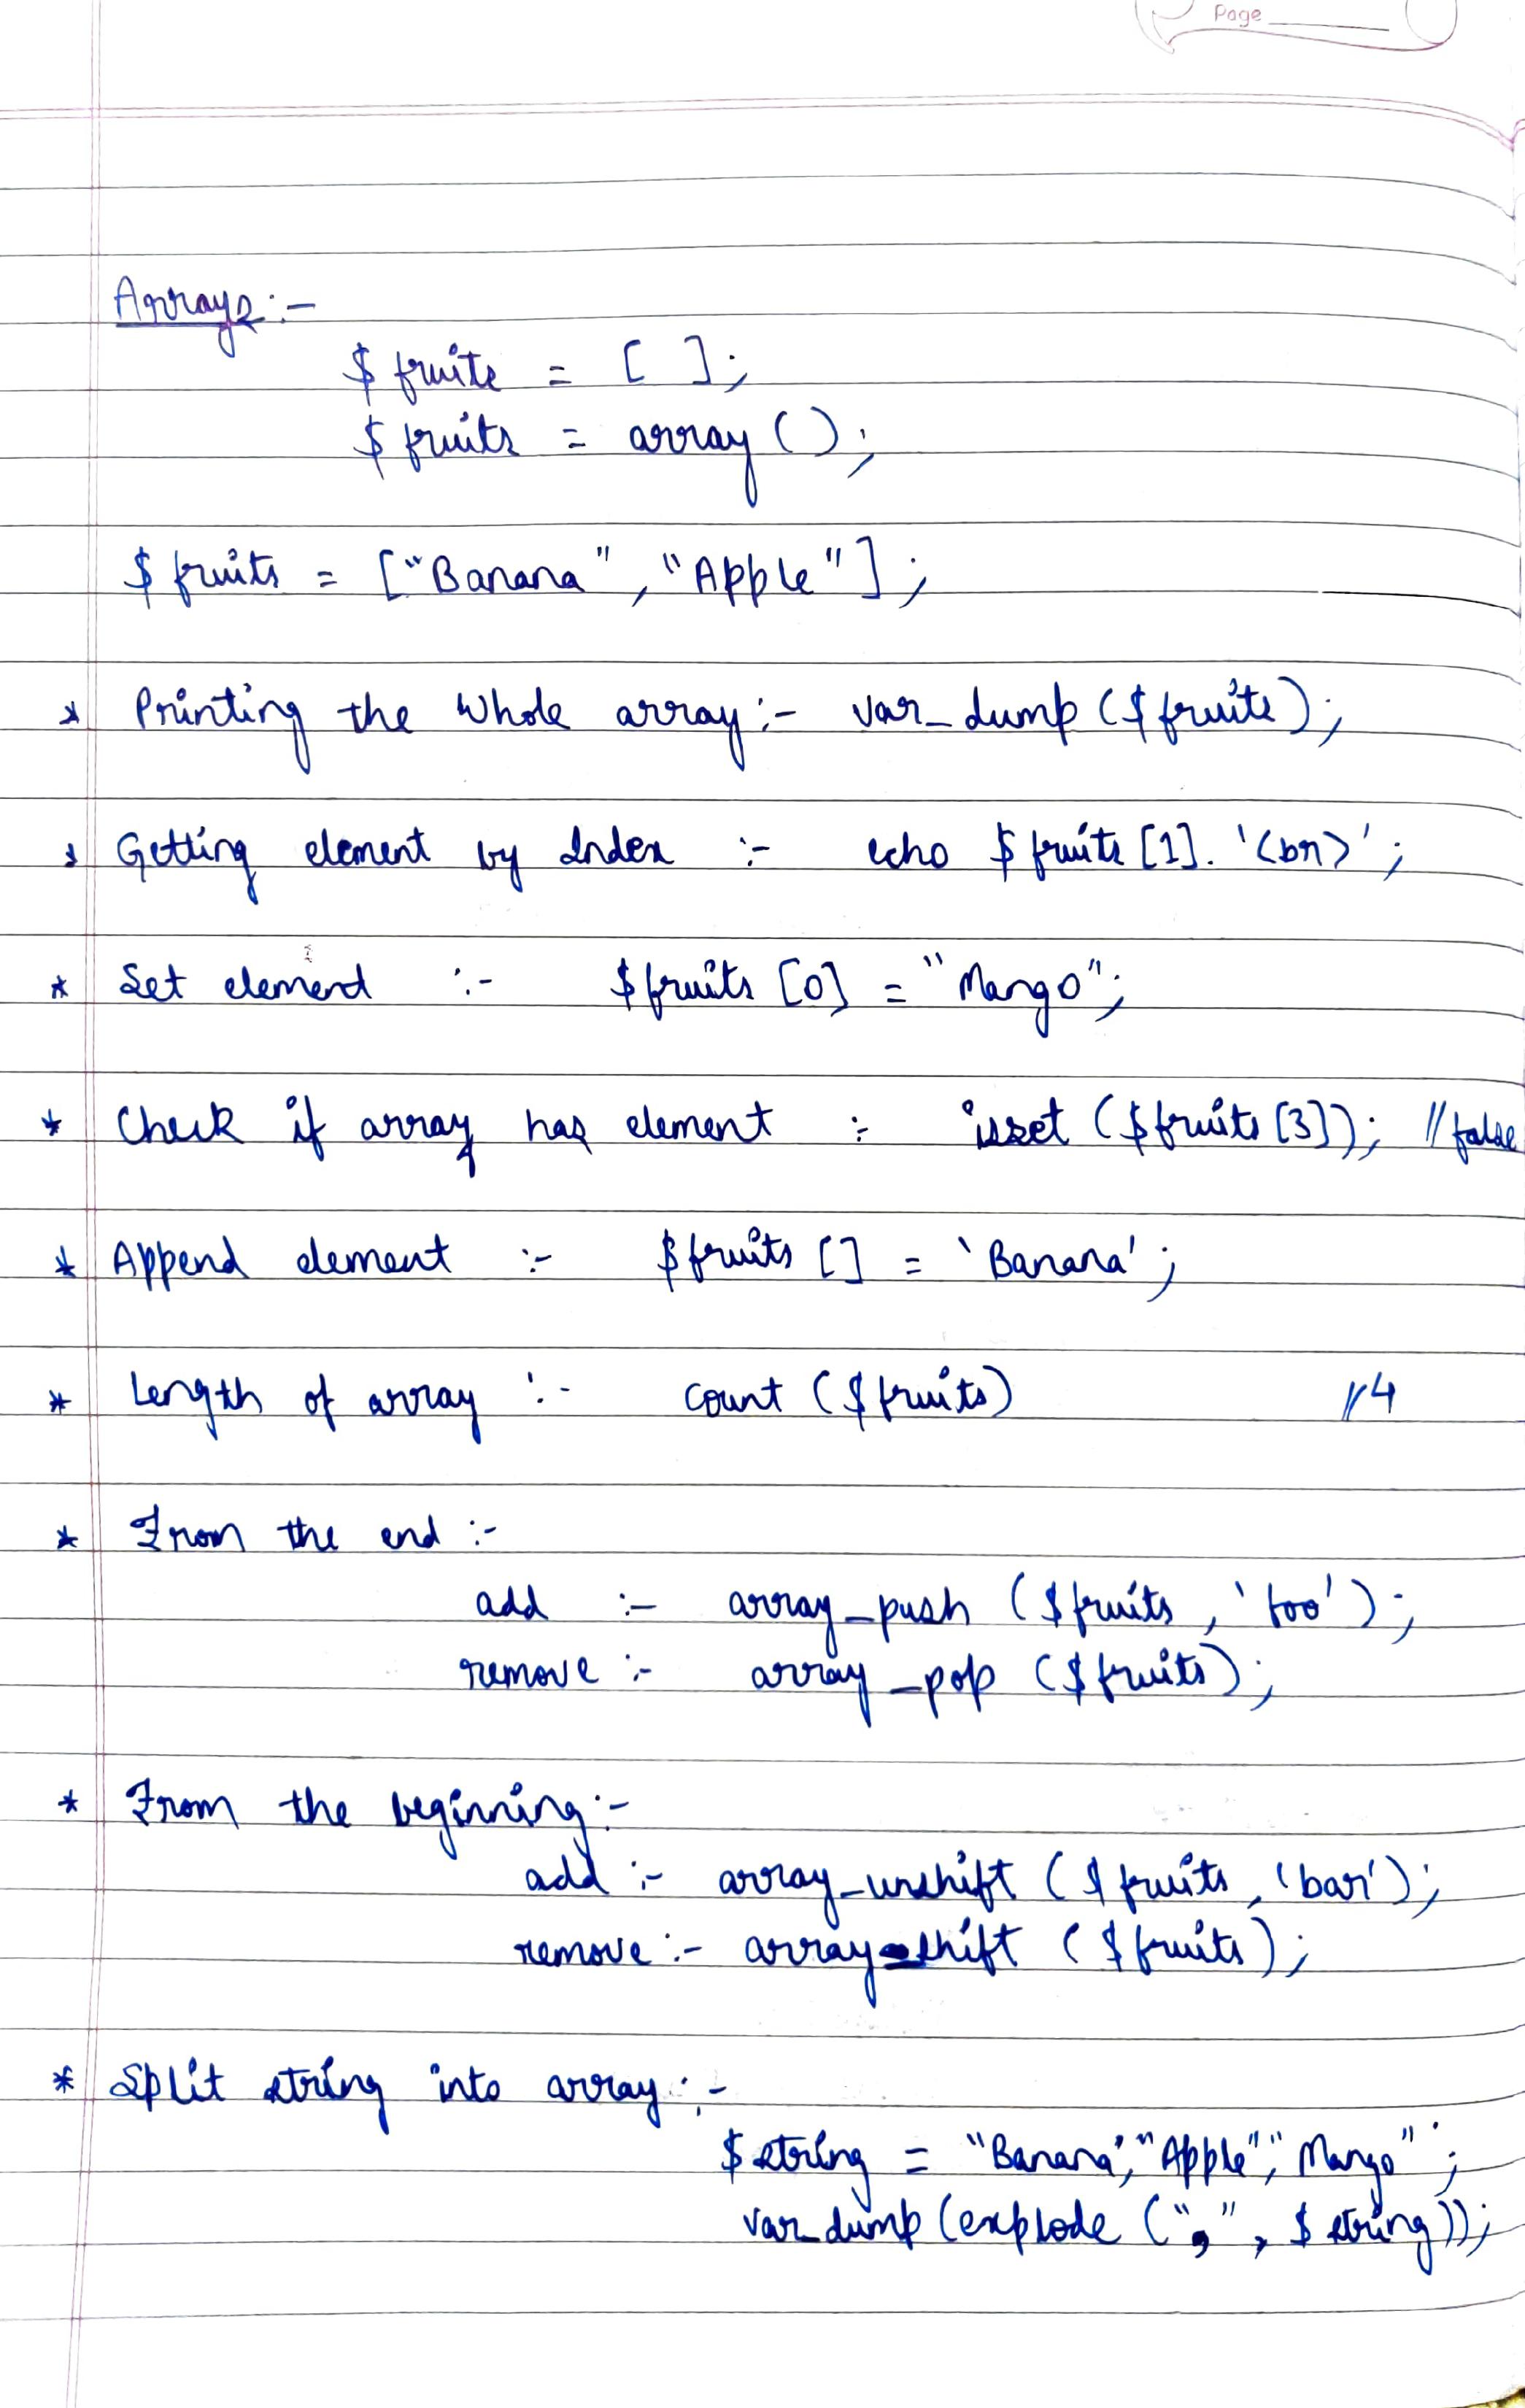 Page
Arrays :-
$ fruits = [ ];
$ fruits = array ();
$ fruits = ["Banana", "Apple"];
* Printing the whole array :- var_dump ($fruits);
* Getting element by Index :- echo $fruits [1]. '<br>';
* Set element :- $fruits [0] = "Mango";
* Check if array has element :- isset ($fruits [3]); // false
* Append element :- $fruits [] = 'Banana';
* Length of array :- count ($fruits) // 4
* From the end :-
add :- array_push ($fruits, 'foo');
remove :- array_pop ($fruits);
* From the beginning :-
add :- array_unshift ($fruits, 'bar');
remove :- array_shift ($fruits);
* Split string into array :-
$string = "Banana", "Apple", "Mango";
var_dump (explode (",", $string));